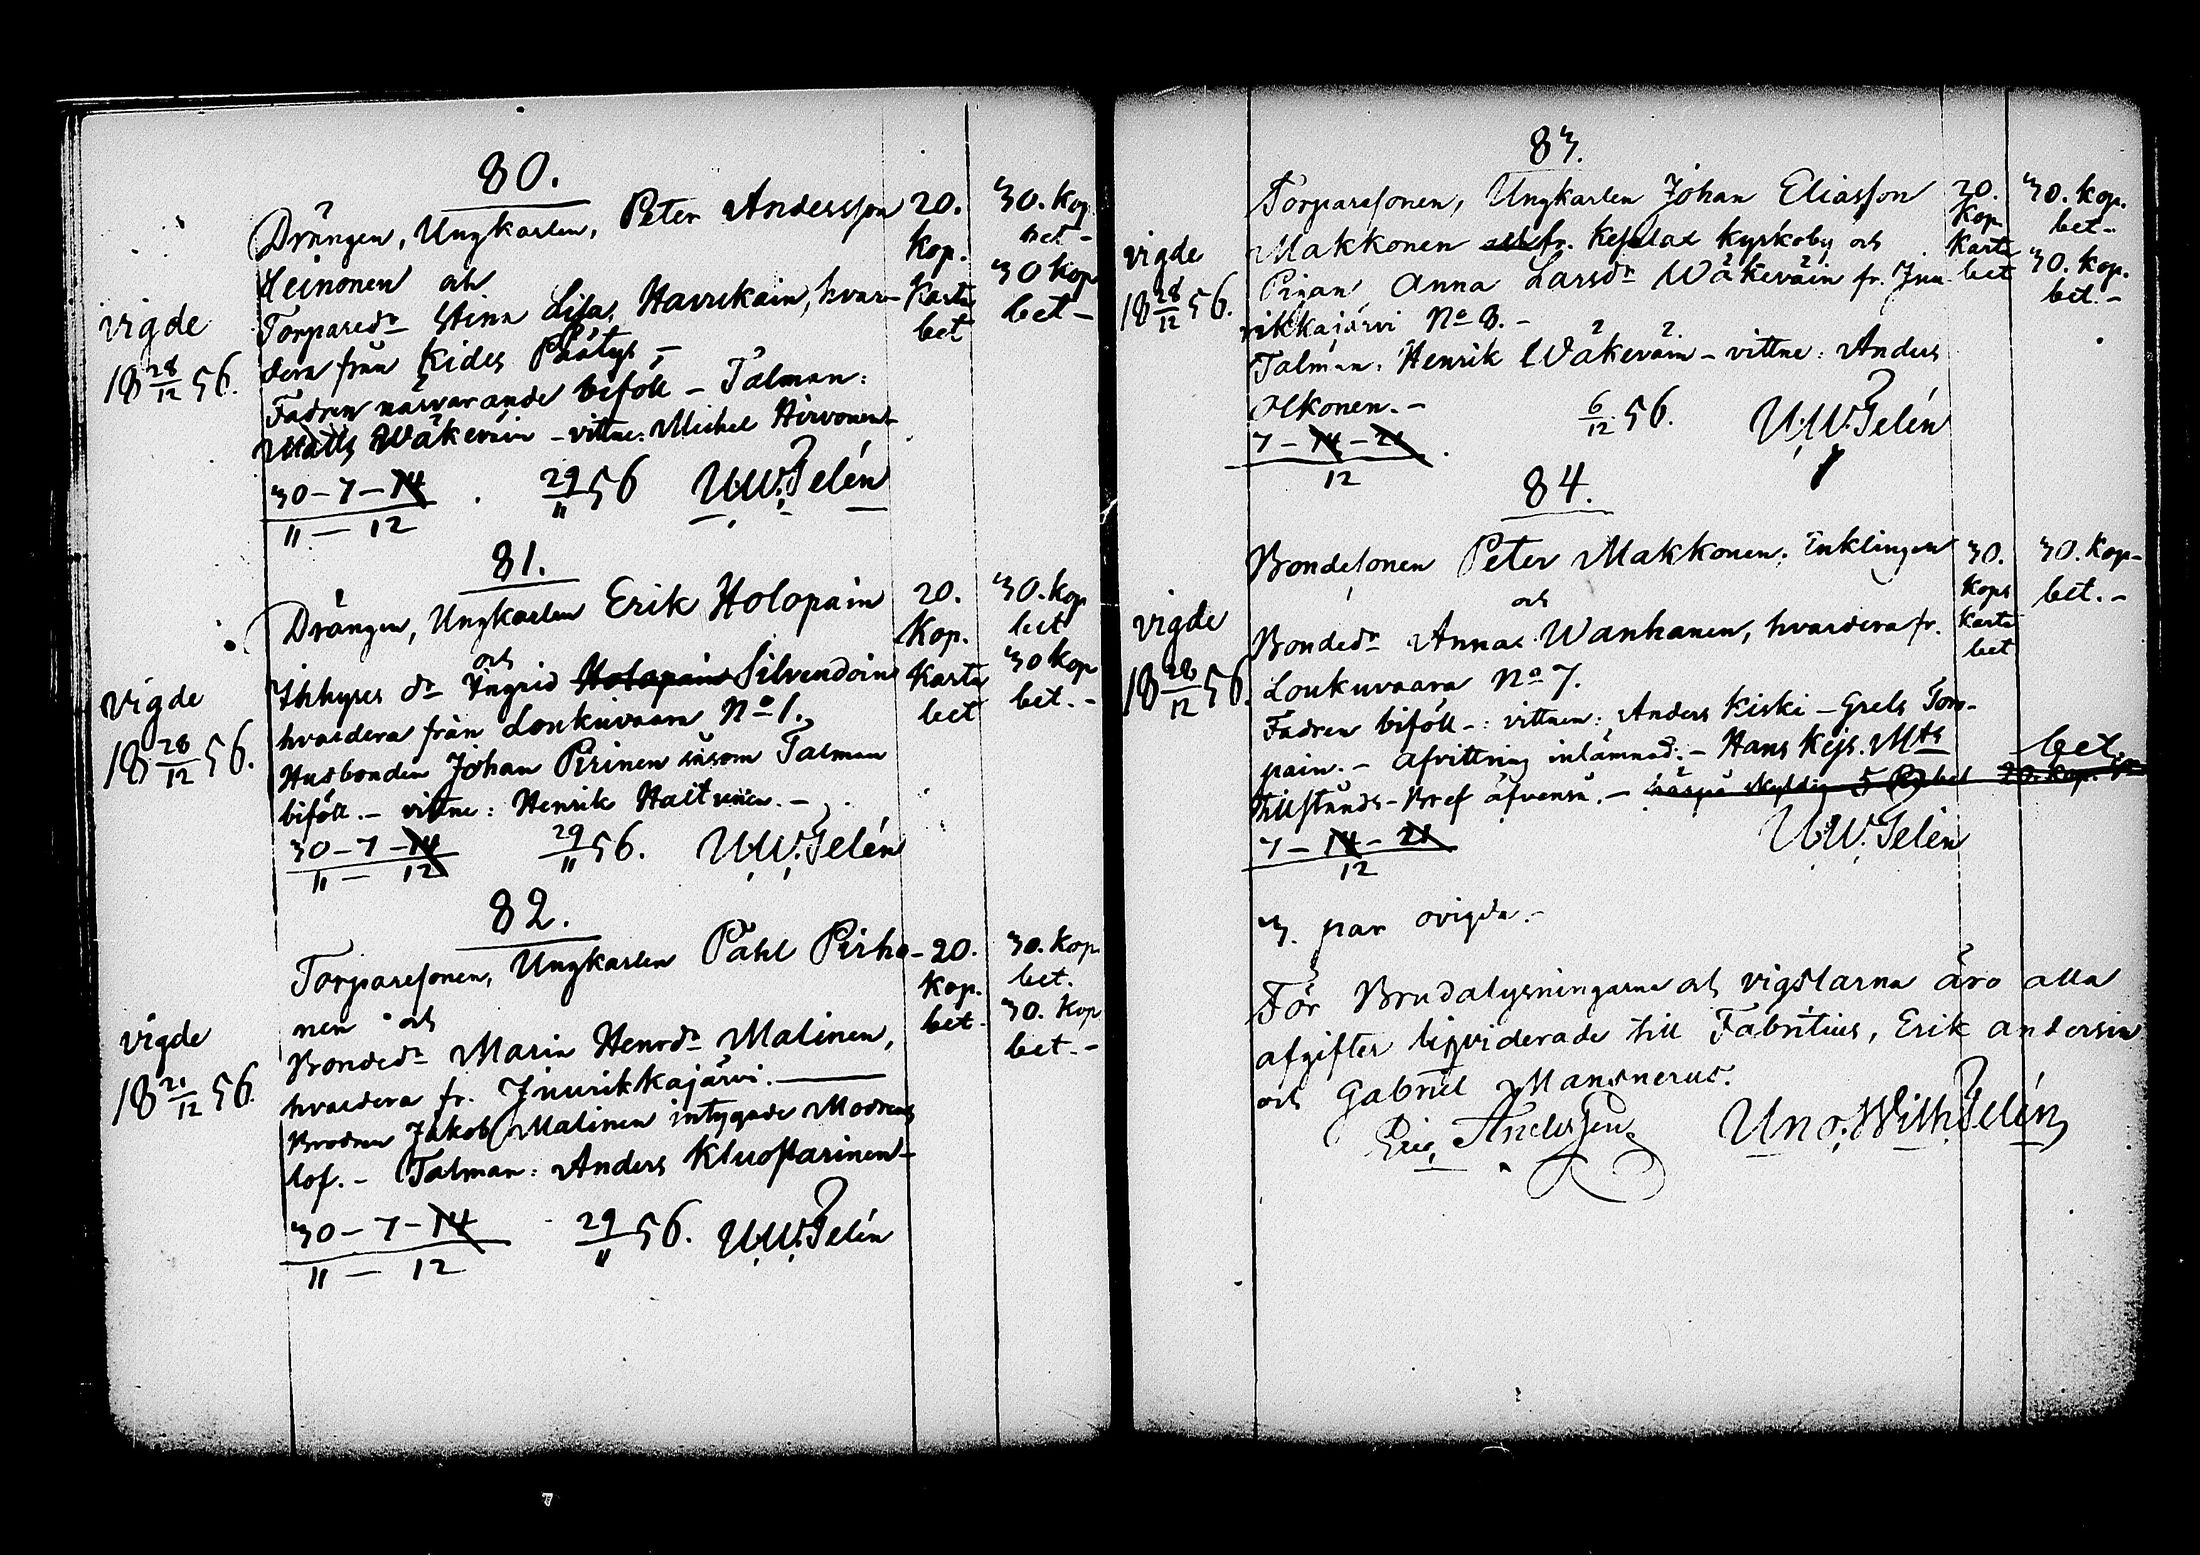 80.
Drängen, Ungkarlen, Peter Andersson
Heinonen och
Torparedr Stina Lisa Havukain, hvar-
dera från Kides Päätys –
Fadren närvarande biföll – Talman:
Matts Wäkeväin – vittne: Michel Hirvonen
30 – 7 – 14
11 – 12
29/11 56 U.W. Telén
vigde
18 28/12 56.
20.
Kop.
Karta
bet
30. Kop
bet –
30 Kop
bet –
81.
Drängen, Ungkarlen Erik Holopain
och
Inhyses dr Ingrid Holopain Silvendoin
hvardera från Loukuvaara No 1.
Husbonden Johan Pirinen såsom Talman
biföll. – vittne: Henrik
30 – 7 – 14
11 – 12
29/11 56. U.W. Telén
vigde
18 28/12 56.
20.
Kop.
Karta
bet
30. Kop
bet
30 Kop
bet. –
82.
Torparesonen, Ungkarlen Påhl Pirho-
nen och
Bondedr Maria Henrdr Malinen,
hvardera fr. Juurikkajärvi.
Brodren Jakob Malinen intygade Modrens
lof. – Talman: Anders
30 – 7 – 14
11 – 12
29/11 56. U.W. Telén
vigde
18 21/12 56.
20.
Kop.
bet.
30. Kop
bet.
30. Kop
bet. –
83.
Torparesonen, Ungkarlen Johan Eliasson
Makkonen fr. Kesälax Kyrkoby och
Pigan Anna Larsdr Wäkeväin fr. Juu-
rikkajärvi No 8. –
Talman: Henrik Wäkeväin – vittne: Anders
Olkonen. –
7 – 14 – 21
12
6/12 56. U.W. Telén
vigde
18 28/12 56.
20.
Kop
Karta
bet
30. Kop.
bet –
30. Kop.
bet. –
84.
Bondesonen Peter Makkonen, Enklingen
och
Bondedr Anna Wanhanen, hvardera fr.
Loukuvaara No 7.
Fadren biföll – : vittnen: Anders Kiski – Grels Tom-
pain. – Afvittring inlämnad: – Hans Kejs. Mts
Tillstånds-Bref äfvenså. – härpå skyldig 5 Rubel 20. Kop.
bet.
7 – 14 – 21
12
U.W. Telén
vigde
18 28/12 56.
30.
Kops
Karta
bet
30. Kop –
bet. –
3. par ovigda. –
För Brudalysningarna och vigslarna äro alla
afgifter liqviderade till Fabritius, Erik Andersin
och Gabriel Mansnerus.
Eric Andersin Uno. Wilh. Telén